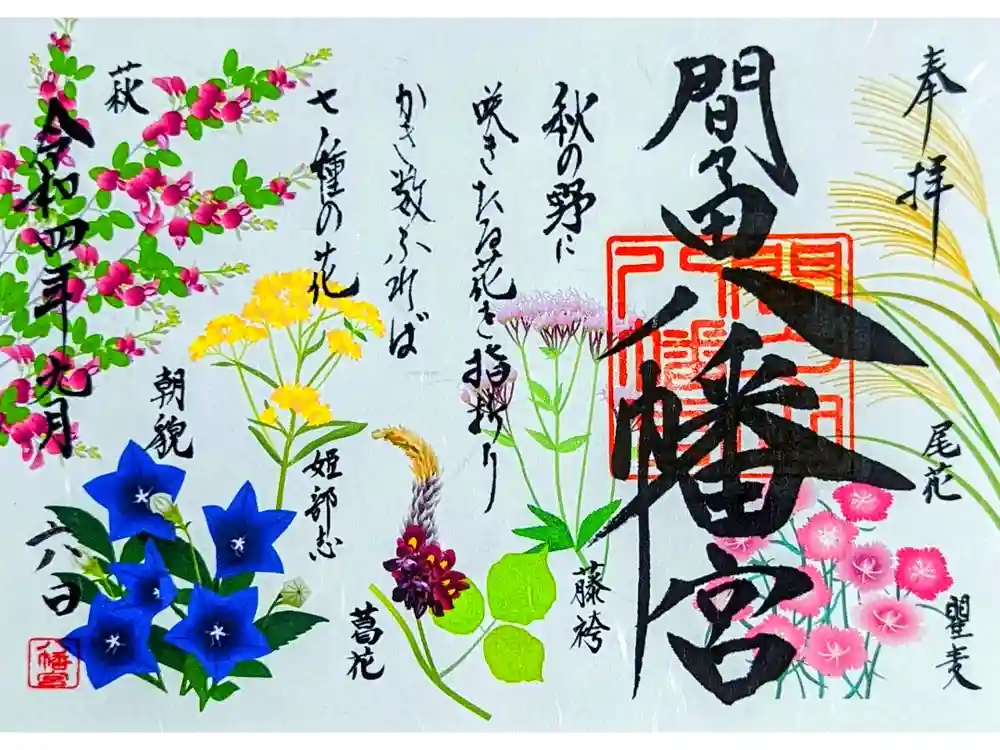 奉拝
間々田八幡宮
尾花
瞿麦
秋の野に
咲きたる花を指折り
かき数ふれば
七種の花
藤袴
葛花
姫部志
朝貌
萩
令和四年九月
六日
八幡宮